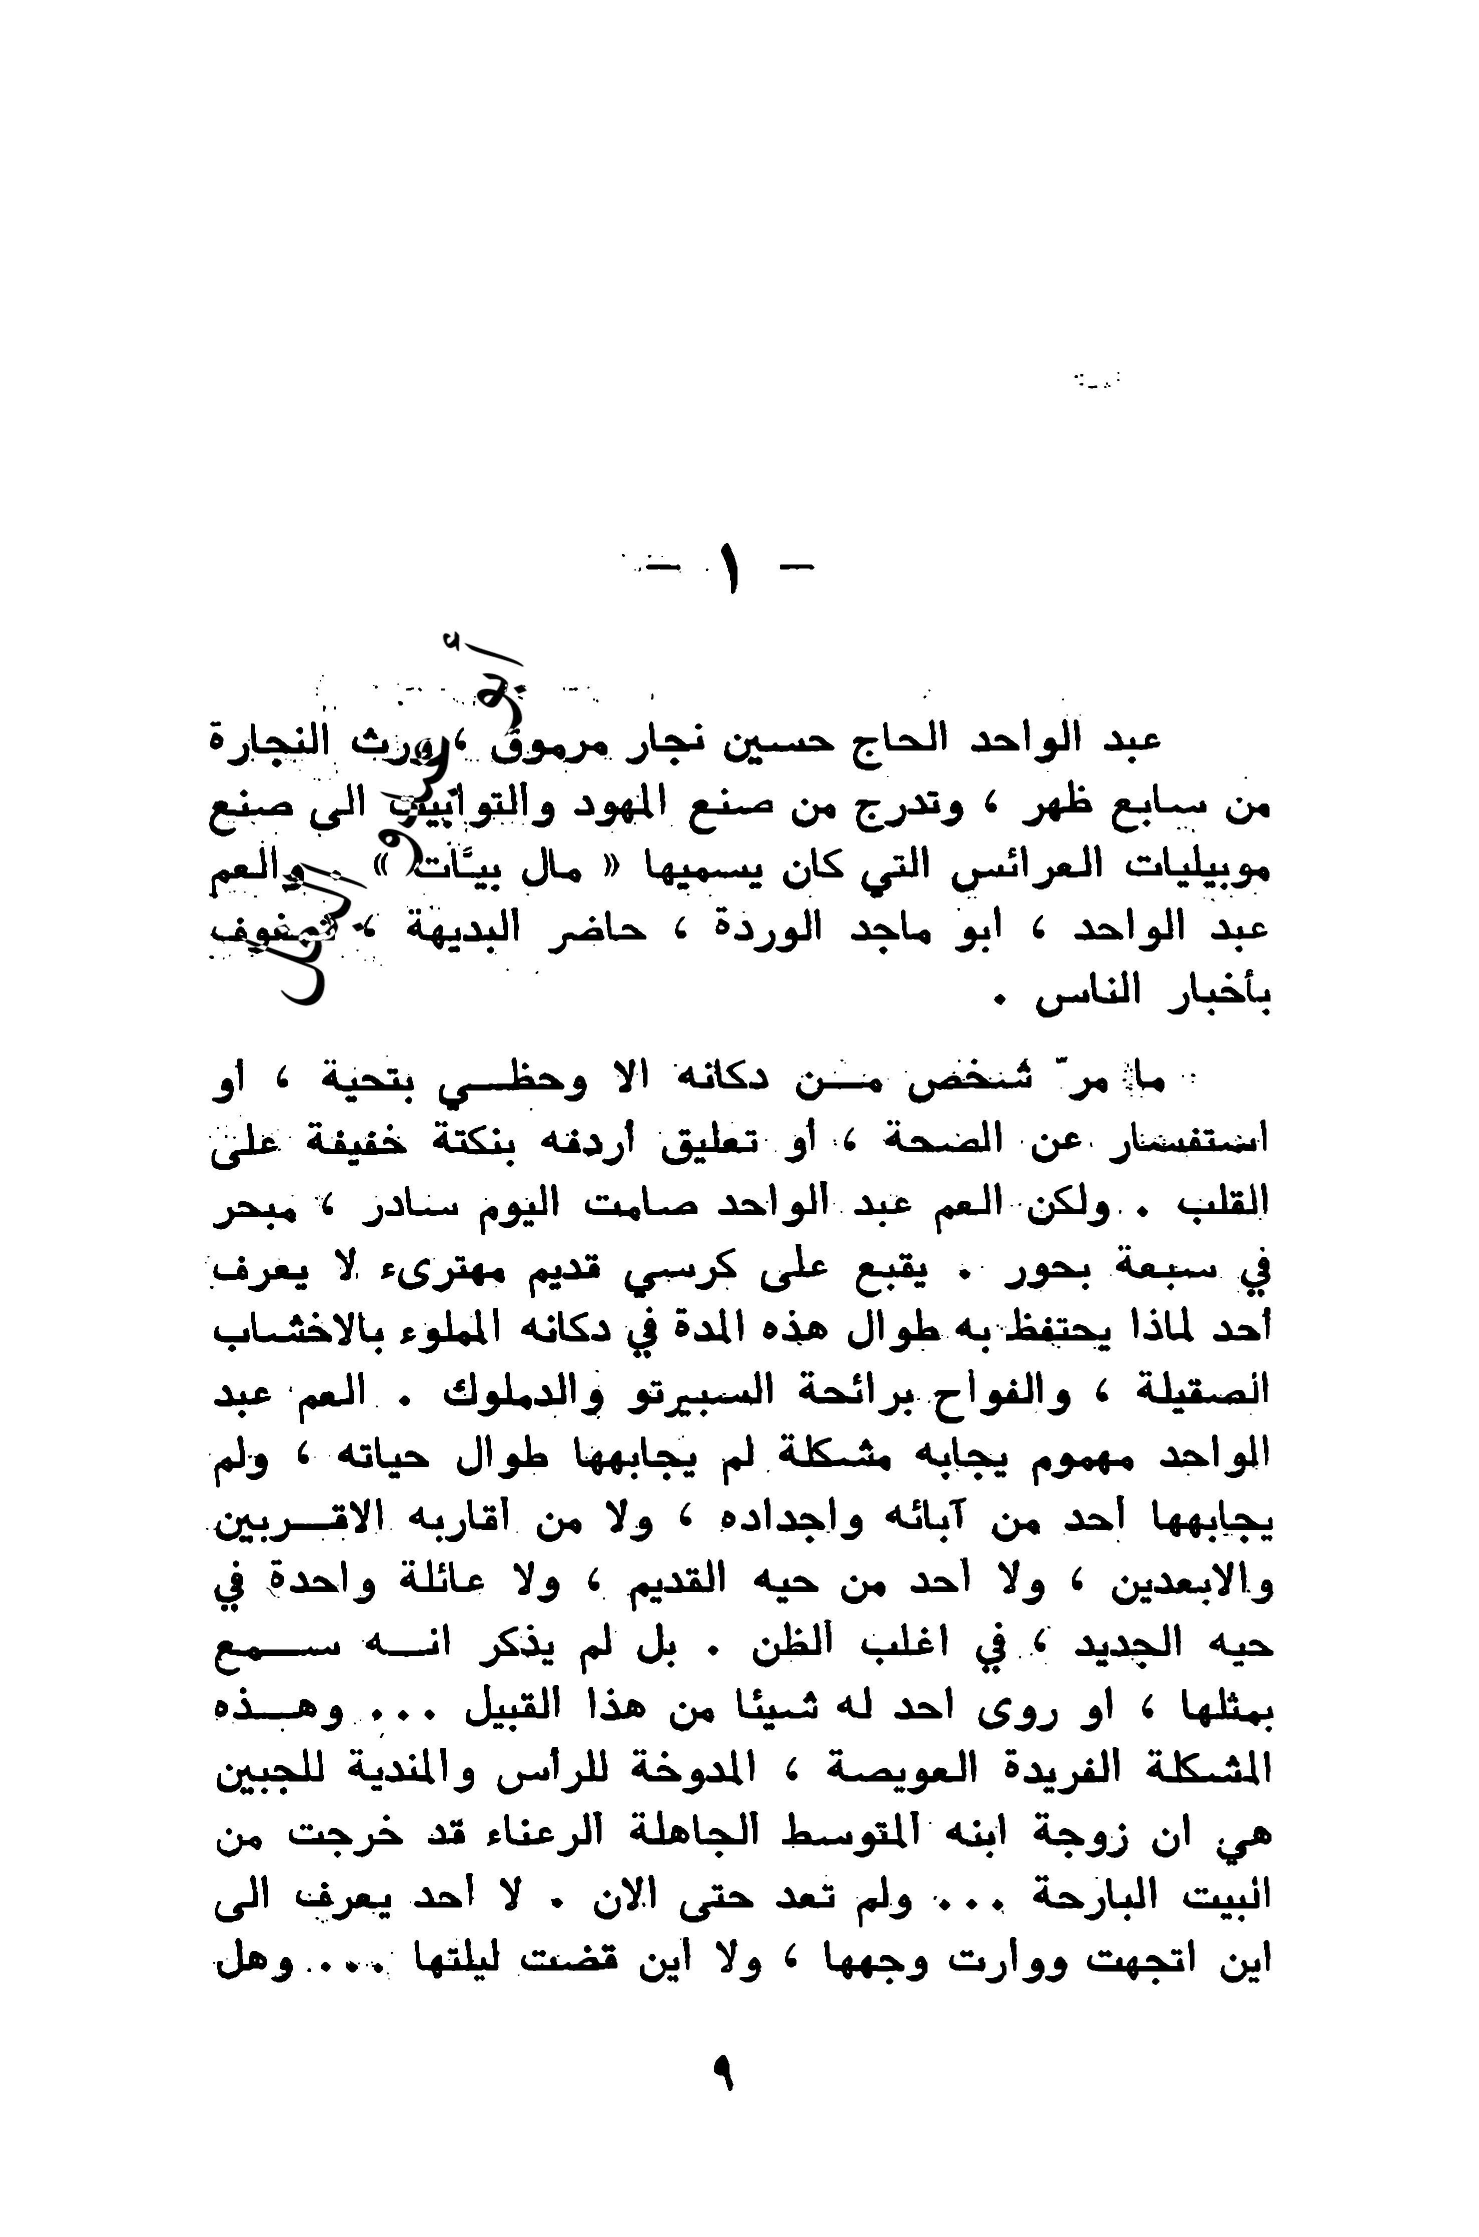 – ١ –
عبد الواحد الحاج حسين نجار مرموق ، ورث النجارة
من سابع ظهر ، وتدرج من صنع المهود والتوابيت الى صنع
موبيليات العرائس التي كان يسميها « مال بيتات » . والعم
عبد الواحد ، ابو ماجد الوردة ، حاضر البديهة ، شغوف
بأخبار الناس .
ما مرّ شخص من دكانه الا وحظي بتحية ، او
استفسار عن الصحة ، أو تعليق أردفه بنكتة خفيفة على
القلب . ولكن العم عبد الواحد صامت اليوم سادر ، مبحر
في سبعة بحور . يقبع على كرسي قديم مهترىء لا يعرف
أحد لماذا يحتفظ به طوال هذه المدة في دكانه المملوء بالاخشاب
الصقيلة ، والفواح برائحة السبيرتو والدملوك . العم عبد
الواحد مهموم يجابه مشكلة لم يجابهها طوال حياته ، ولم
يجابهها أحد من آبائه واجداده ، ولا من أقاربه الاقربين
والابعدين ، ولا أحد من حيه القديم ، ولا عائلة واحدة في
حيه الجديد ، في اغلب الظن . بل لم يذكر انه سمع
بمثلها ، او روى احد له شيئا من هذا القبيل ... وهذه
المشكلة الفريدة العويصة ، المدوخة للرأس والمندية للجبين
هي ان زوجة ابنه المتوسط الجاهلة الرعناء قد خرجت من
البيت البارحة ... ولم تعد حتى الان . لا أحد يعرف الى
اين اتجهت ووارت وجهها ، ولا أين قضت ليلتها ... وهل
٩